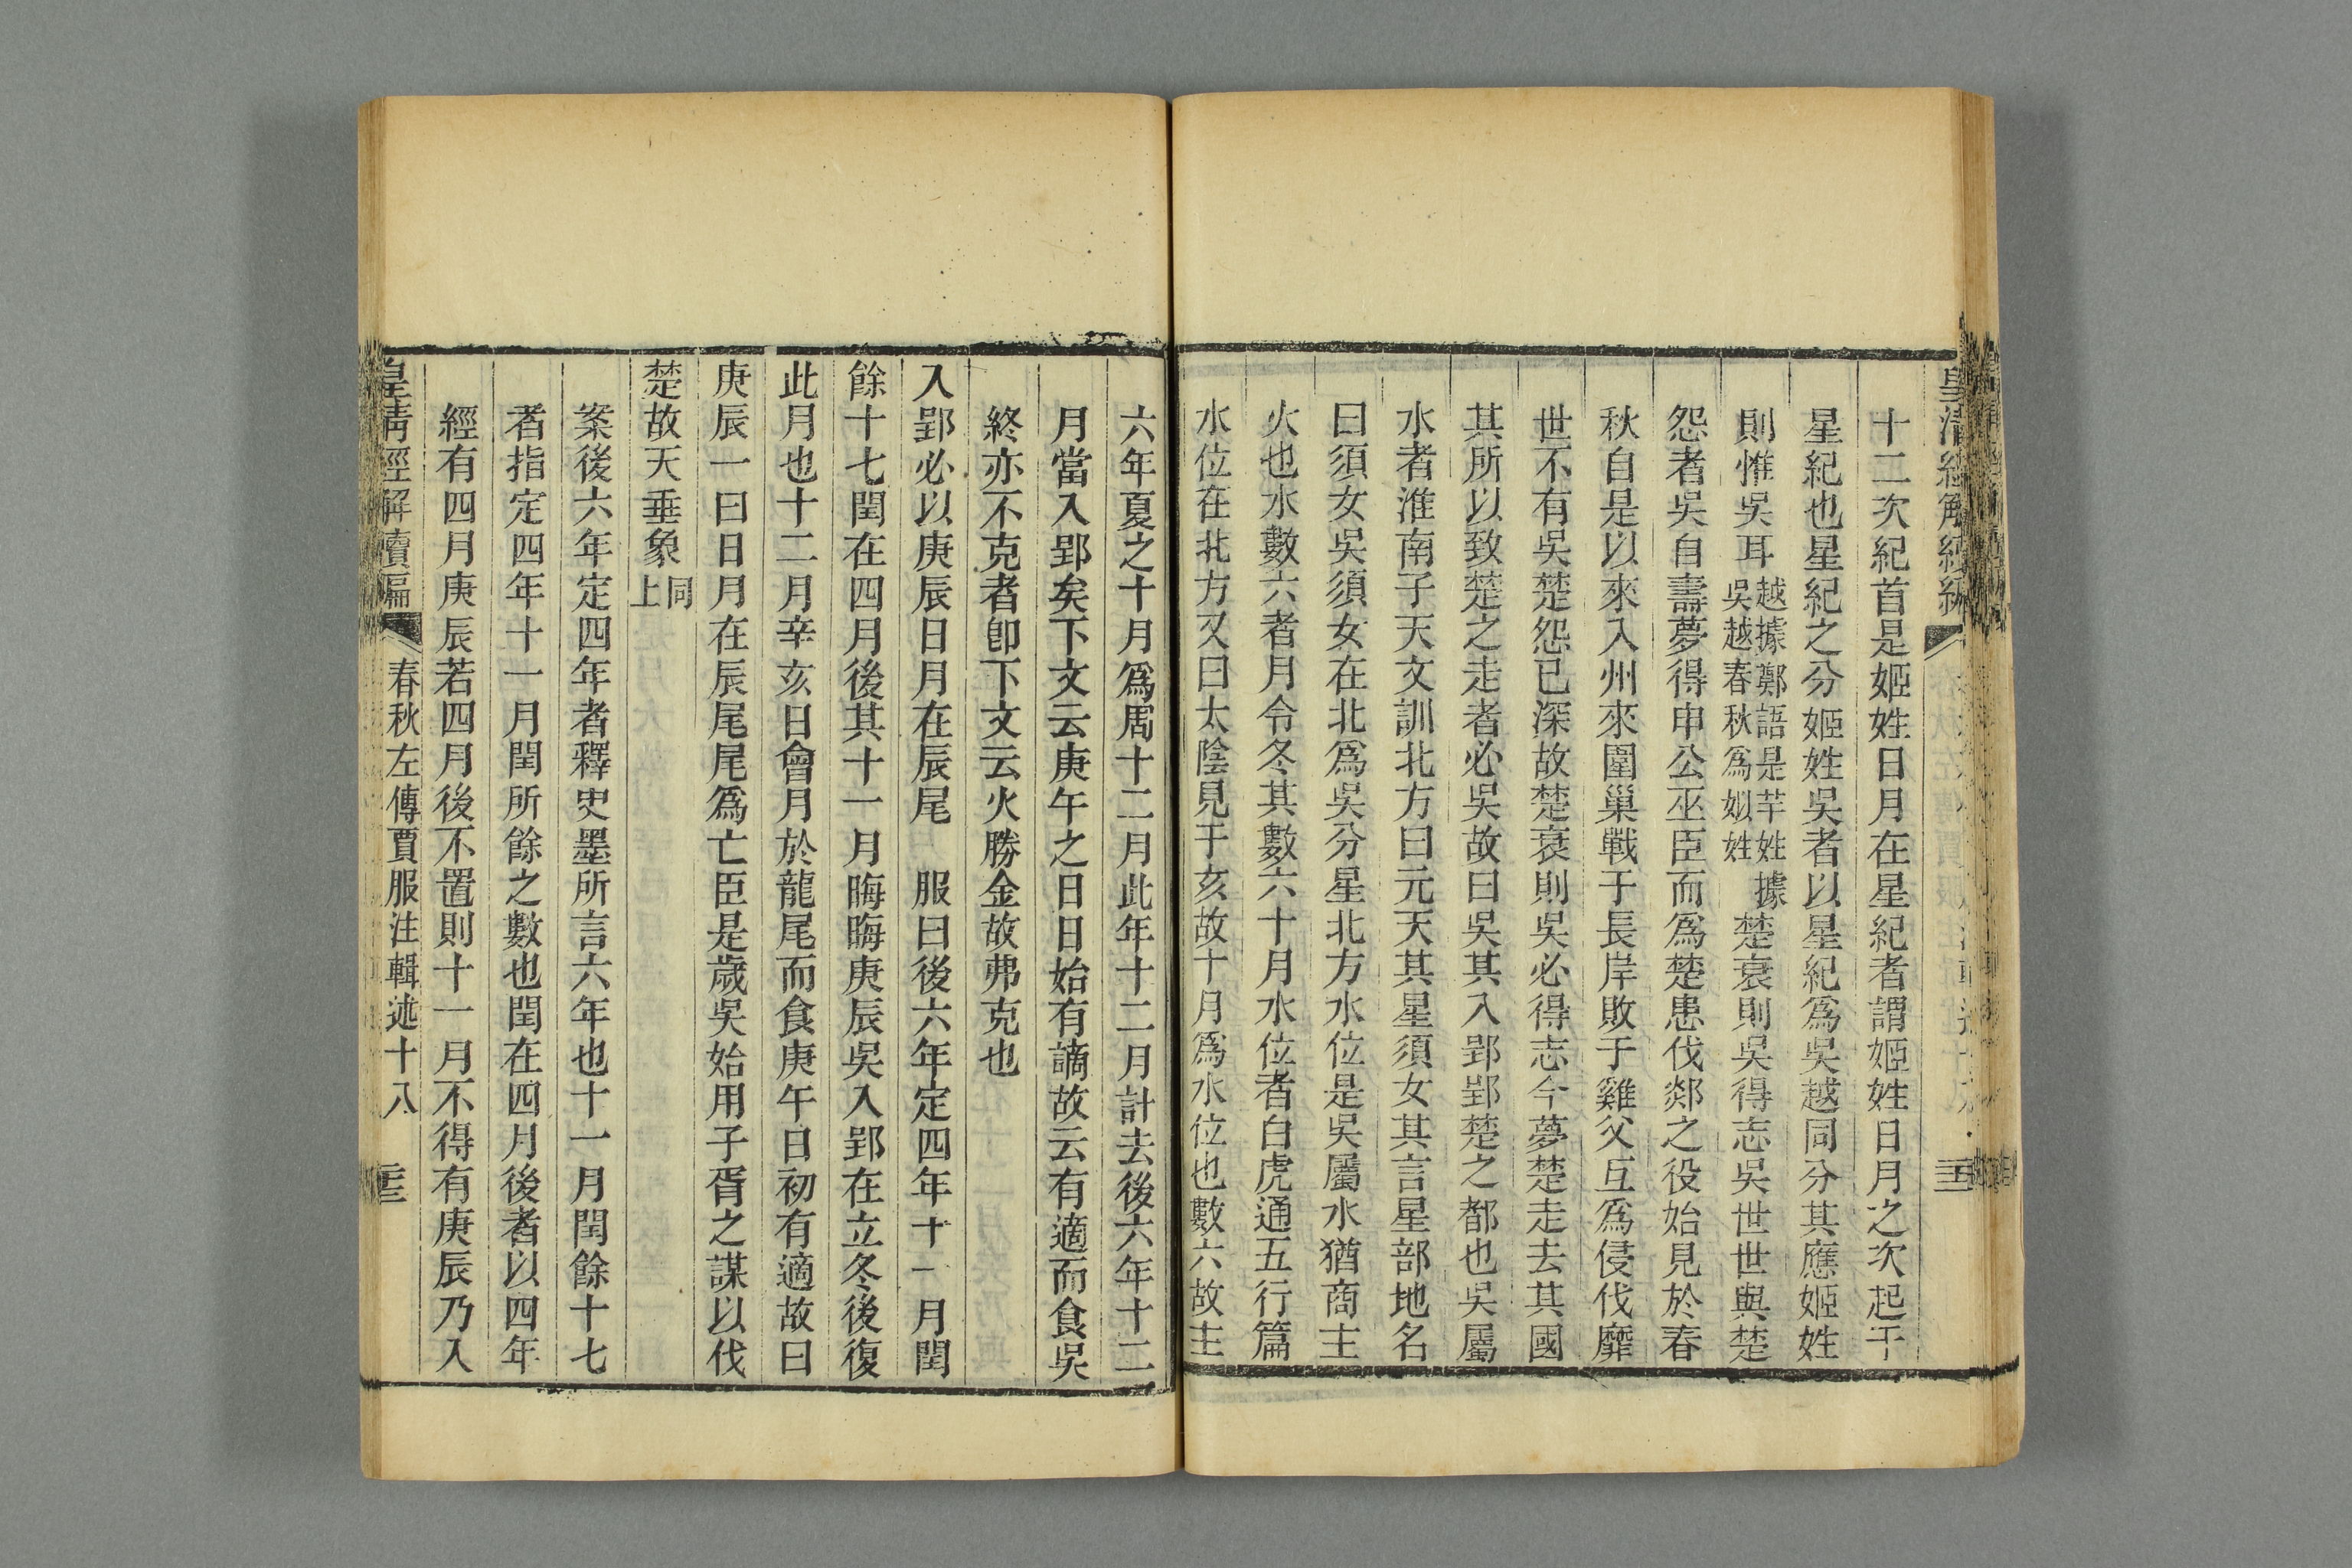 十二次紀首是姬姓日月在星紀者謂姬姓日月之次起于
星紀也星紀之分姬姓吳者以星紀爲吳越同分其應姬姓
則惟吳耳越據鄭語是芊姓據吳越春秋爲姒姓楚衰則吳得志吳世世與楚
怨者吳自壽夢得申公巫臣而爲楚患伐郯之役始見於春
秋自是以來入州來圍巢戰于長岸敗于雞父互爲侵伐靡
世不有吳楚怨已深故楚衰則吳必得志今夢楚走去其國
其所以致楚之走者必吳故曰吳其入郢郢楚之都也吳屬
水者淮南子天文訓北方曰元天其星須女其言星部地名
曰須女吳須女在北爲吳分星北方水位是吳屬水猶商主
火也水數六者月令冬其數六十月水位者白虎通五行篇
水位在北方又曰太陰見于亥故十月爲水位也數六故主
六年夏之十月爲周十二月此年十二月計去後六年十二
月當入郢矣下文云庚午之日日始有謫故云有適而食吳
終亦不克者卽下文云火勝金故弗克也
入郢必以庚辰日月在辰尾 服曰後六年定四年十一月閏
餘十七閏在四月後其十一月晦晦庚辰吳入郢在立冬後復
此月也十二月辛亥日會月於龍尾而食庚午日初有適故曰
庚辰一曰日月在辰尾尾爲亡臣是歲吳始用子胥之謀以伐
楚故天垂象同上
案後六年定四年者釋史墨所言六年也十一月閏餘十七
者指定四年十一月閏所餘之數也閏在四月後者以四年
經有四月庚辰若四月後不置則十一月不得有庚辰乃入
皇清經解續編 春秋左傳賈服注輯述十八 三三